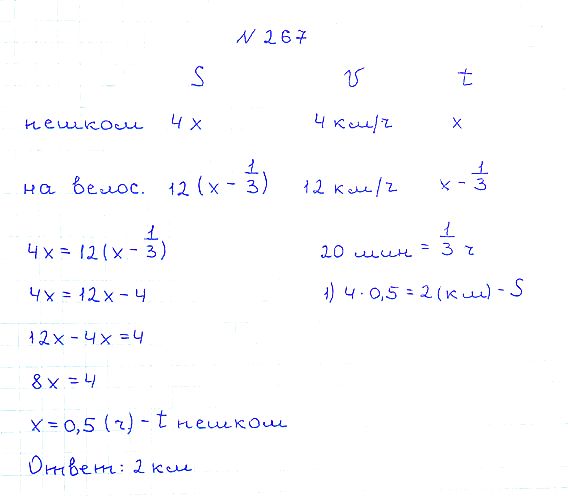 N 267
S v t
пешком 4x 4 км/ч x
на велос. 12(x - 1/3) 12 км/ч x - 1/3
4x = 12(x - 1/3) 20 мин = 1/3 ч
4x = 12x - 4 1) 4 · 0,5 = 2 (км) - S
12x - 4x = 4
8x = 4
x = 0,5 (ч) - t пешком
Ответ: 2 км